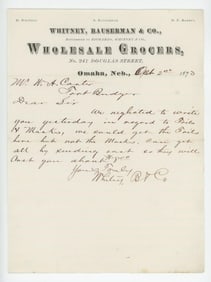 WHITNEY, BAUSERMAN & CO.,
WHOLESALE GROCERS,
No. 247 DOUGLAS STREET.
Omaha, Neb., Sept 2nd 1873
Mr. W. A. Carter
Fort Bridger
Dear Sir
We neglected to write
you yesterday in regard to Pails
& Masks, we could get the Pails
here but not the Masks. Can get
all by sending east so they will
Cost you about
Yours Truly
Whitney B & Co